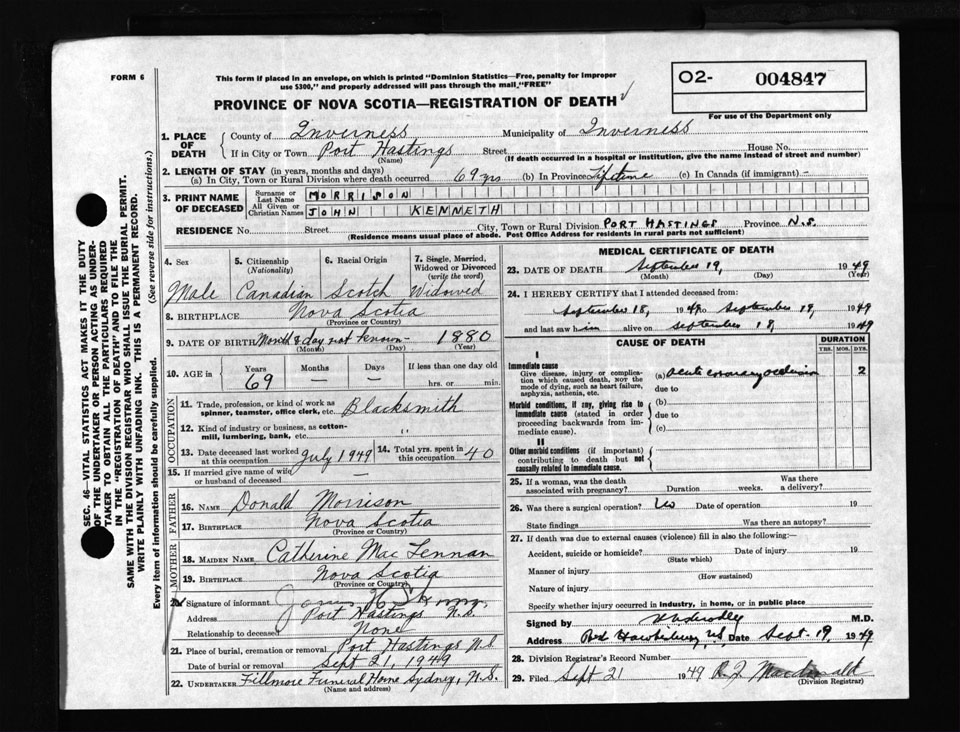 FORM 6
This form if placed in an envelope, on which is printed "Dominion Statistics—Free, penalty for improper
use $300," and properly addressed will pass through the mail, "FREE"
O2- 004847
PROVINCE OF NOVA SCOTIA—REGISTRATION OF DEATH
For use of the Department only
1. PLACE OF DEATH County of Inverness Municipality of Inverness
If in City or Town Port Hastings (Name) Street House No.
(If death occurred in a hospital or institution, give the name instead of street and number)
2. LENGTH OF STAY (in years, months and days)
(a) In City, Town or Rural Division where death occurred 69 yrs (b) In Province Lifetime (c) In Canada (if immigrant) -
3. PRINT NAME OF DECEASED Surname or Last Name MORRISON
All Given or Christian Names JOHN KENNETH
RESIDENCE No. Street City, Town or Rural Division PORT HASTINGS Province N.S.
(Residence means usual place of abode. Post Office Address for residents in rural parts not sufficient)
4. Sex 5. Citizenship (Nationality) 6. Racial Origin 7. Single, Married, Widowed or Divorced (write the word)
Male Canadian Scotch Widowed
8. BIRTHPLACE Nova Scotia
(Province or Country)
9. DATE OF BIRTH Month & day not known- 1880
(Month) (Day) (Year)
10. AGE in Years Months Days If less than one day old
69 — — hrs. or min.
OCCUPATION
11. Trade, profession, or kind of work as spinner, teamster, office clerk, etc. Blacksmith
12. Kind of industry or business, as cotton-mill, lumbering, bank, etc. "
13. Date deceased last worked at this occupation July 1949 14. Total yrs. spent in this occupation 40
15. If married give name of wife or husband of deceased —
FATHER
16. NAME Donald Morrison
17. BIRTHPLACE Nova Scotia
(Province or Country)
MOTHER
18. MAIDEN NAME Catherine MacLennan
19. BIRTHPLACE Nova Scotia
(Province or Country)
Signature of informant
Address Port Hastings N.S.
Relationship to deceased None
21. Place of burial, cremation or removal Port Hastings N.S.
Date of burial or removal Sept 21, 1949
22. UNDERTAKER Fillmore Funeral Home Sydney, N.S.
(Name and address)
MEDICAL CERTIFICATE OF DEATH
23. DATE OF DEATH September 19, 1949
(Month) (Day) (Year)
24. I HEREBY CERTIFY that I attended deceased from:
September 18, 1949 to September 19, 1949
and last saw him alive on September 18, 1949
CAUSE OF DEATH DURATION
YRS. MOS. DYS.
I
Immediate cause
Give disease, injury or complication which caused death, NOT the mode of dying, such as heart failure, asphyxia, asthenia, etc.
(a) acute coronary occlusion 2
due to
Morbid conditions, if any, giving rise to immediate cause (stated in order proceeding backwards from immediate cause)
(b)
due to
(c)
II
Other morbid conditions (if important) contributing to death but not causally related to immediate cause.
25. If a woman, was the death associated with pregnancy? Duration weeks. Was there a delivery?
26. Was there a surgical operation? No Date of operation 19
State findings Was there an autopsy?
27. If death was due to external causes (violence) fill in also the following:—
Accident, suicide or homicide? Date of injury 19
(State which)
Manner of injury
(How sustained)
Nature of injury
Specify whether injury occurred in industry, in home, or in public place
Signed by M.D.
Address Port Hawkesbury NS Date Sept. 19 1949
28. Division Registrar's Record Number
29. Filed Sept 21 1949 Macdonald
(Division Registrar)
SEC. 46 VITAL STATISTICS ACT MAKES IT THE DUTY
OF THE UNDERTAKER OR PERSON ACTING AS UNDER-
TAKER TO OBTAIN ALL THE PARTICULARS REQUIRED
IN THE "REGISTRATION OF DEATH" AND TO FILE THE
SAME WITH THE DIVISION REGISTRAR WHO SHALL ISSUE THE BURIAL PERMIT.
WRITE PLAINLY WITH UNFADING INK. THIS IS A PERMANENT RECORD.
Every item of information should be carefully supplied. (See reverse side for instructions.)